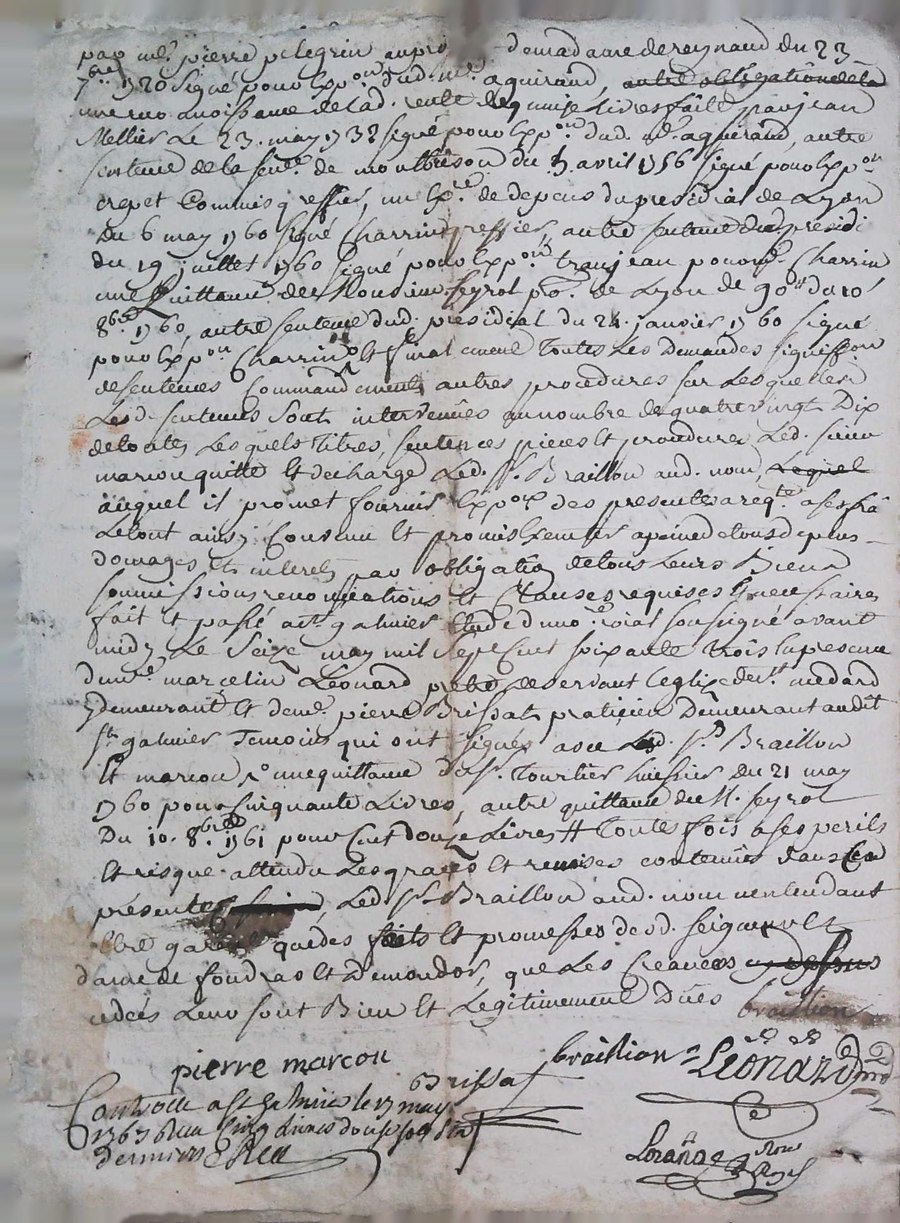 par me. pierre pelegrin au pro de madame de reynaud du 23
7bre 1720 signé pour Exp.on dud. me. aguiraud, autre obligation de la
une reconnoissance de lad. rente de quinze livres faite par jean
Mellier Le 23. may 1732 signé pour Exp.on dud. me. aguiraud, autre
sentence de la sene. de montbrison du 7 avril 1756 signé pour Exp.on
crepet Commis greffier, un Ex.re de depens du presidial de Lyon
du 6 may 1760 signé Charrin greffier, autre sentence dud. presidi
du 19 juillet 1760 signé pour Exp.on tranjean pour me. Charrin
une Quittance de Monsieur seyrol pro. de Lyon de 90 du 10
8bre 1760, autre sentence dud. presidial du 24. janvier 1760 signé
pour Exp.on Charrin, Et finalement toutes Les Demandes signiffon
de sentences Commandements autres procedures sur Lesquelles
Lesd. sentences sont intervenües au nombre de quatre vingt Dix
de toutes Lesquels titres, sentences pieces Et procedures Led. sieur
marcou quitte Et decharge Led. sr. Braillon aud. nom, Lequel
auquel il promet fournir Exp.on des presentes a reqte. a ses frà
Le tout ainsy Convenu Et promis Executer a peine de tous depens
domages Et interets par obligation de tous Leurs Biens
soumissions renonciations Et Clauses requises Et necessaires
fait Et passé a st. galmier Etude du nore. roial soussigné avant
midy Le Seize may mil sept Cent soixante trois En presence
de me. marcelin Léonard prêtre desservant L'eglize de st. medard
y demeurant Et de me. pierre Brissat praticien Demeurant audit
st. galmier Temoins qui ont signés avec Led. sr. Braillon
Et marcou une quittance de sr. Tourlier huissier du 21 may
1760 pour Cinquante Livres, autre quittance du M. seyrol
Du 10. 8bre. 1761 pour Cent douze Livres # Toutes fois a ses perils
Et risque attendu Les graces Et remises contenües dans Ces
présentes Led. sr. Braillon aud. nom n'entendant
Etre garent que des faits Et promesses desd. seigneur Et
dame de fondras Et Demondor, que Les Creances cy dessus
cedées Leur sont Bien Et Légitimement Dües braillion
pierre marcou braillion Léonard
Brissat
Controlle a st. galmier le 17 may
1763 Reçu Cinq Livres douze sols
derniers